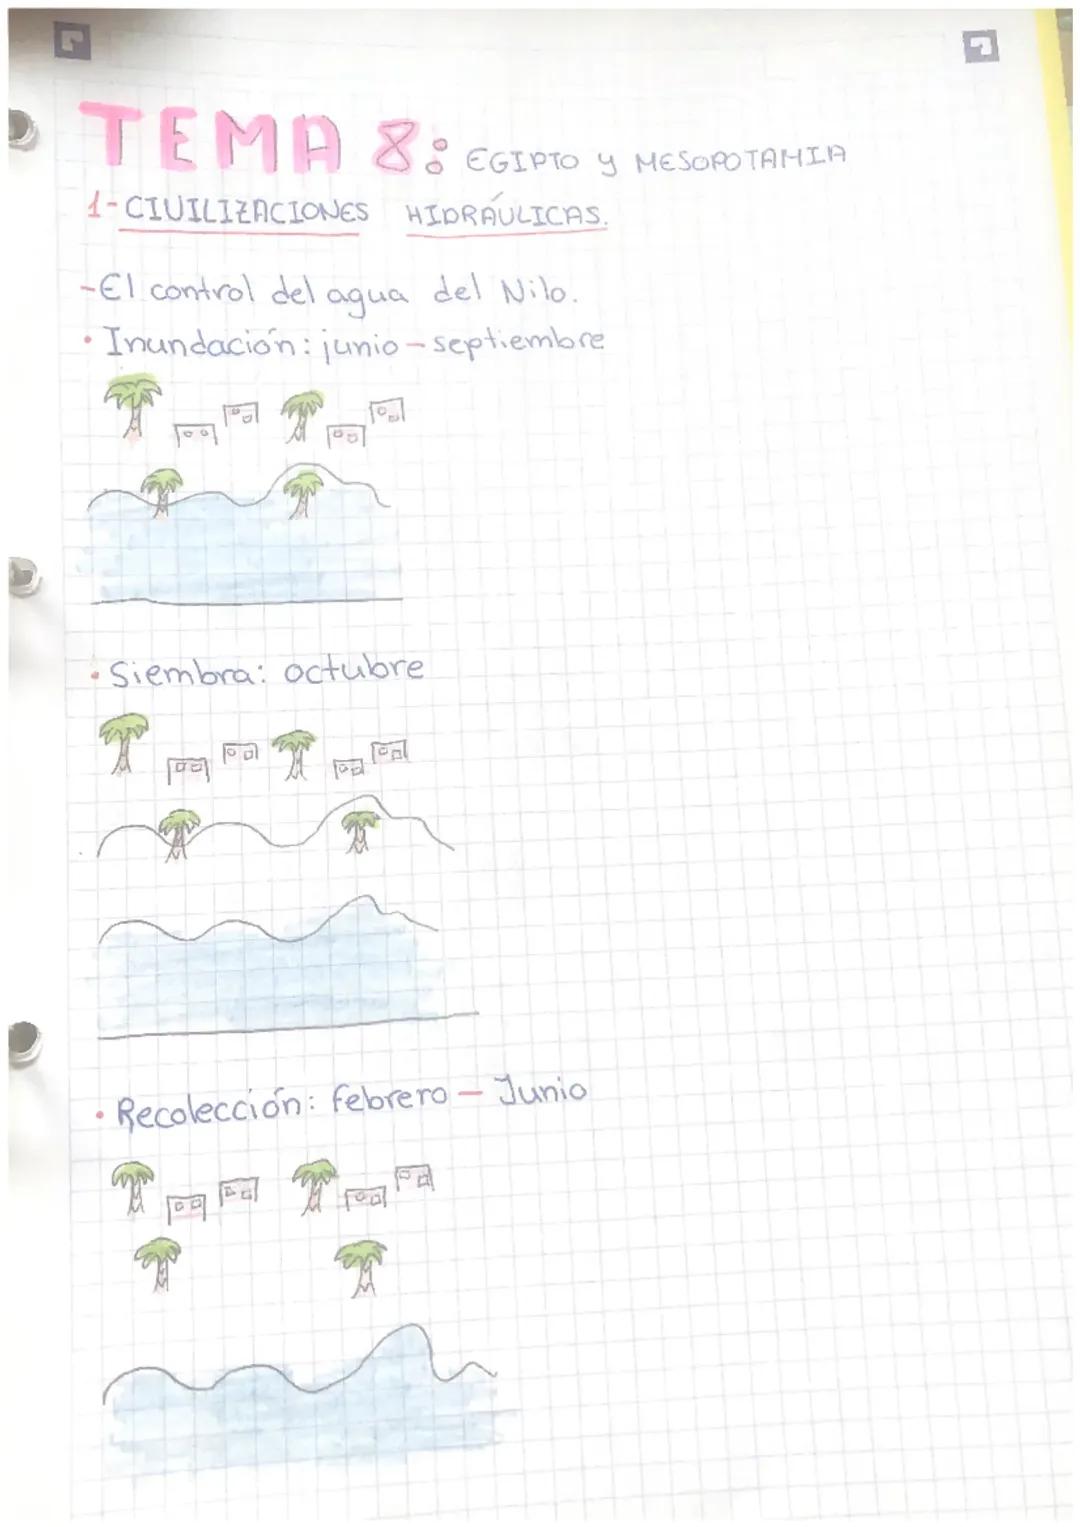 TEMA 8: EGIPTO y MESOPOTAMIA
1-CIVILIZACIONES HIDRÁULICAS.
-El control del agua del Nilo.
• Inundación: junio - septiembre
• Siembra: octubre
• Recolección: febrero - Junio